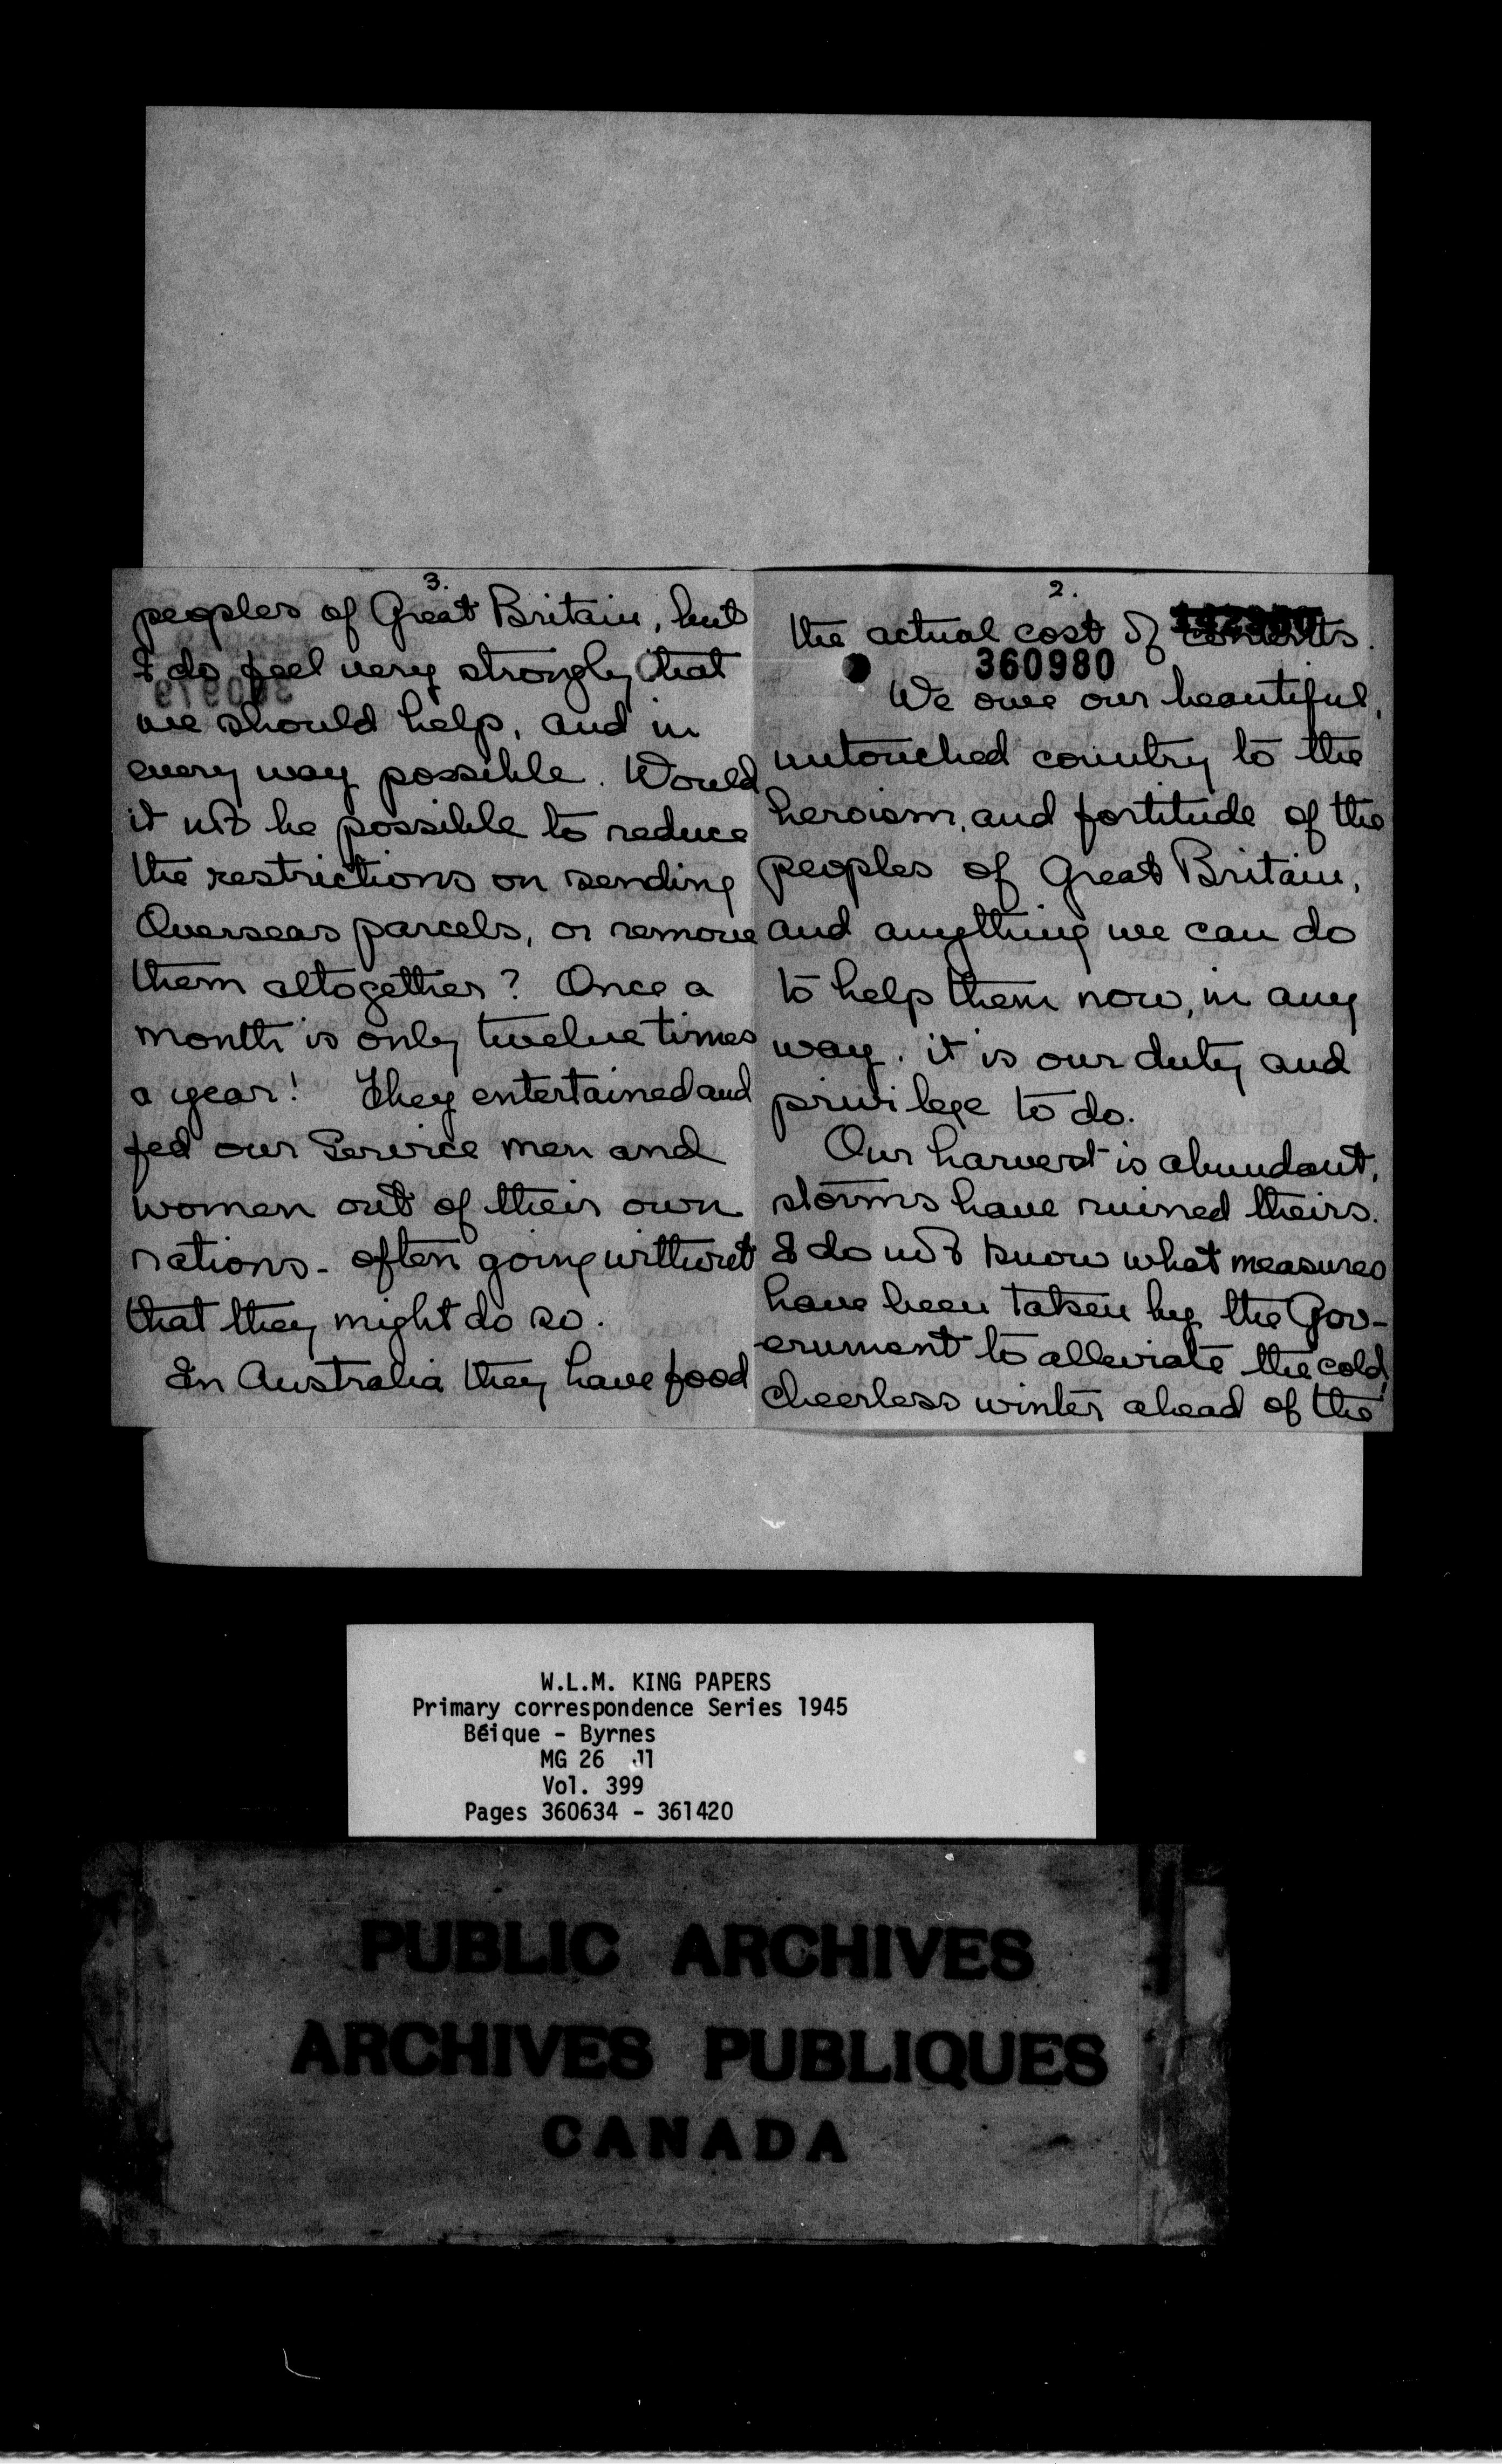 2.
the actual cost of contents.
360980
We owe our beautiful,
untouched country to the
heroism, and fortitude of the
peoples of Great Britain,
and anything we can do
to help them now, in any
way, it is our duty and
privilege to do.
Our harvest is abundant,
storms have ruined theirs.
I do not know what measures
have been taken by the Gov-
ernment to alleviate the cold,
cheerless winter ahead of the
3.
peoples of Great Britain, but
I do feel very strongly that
we should help, and in
every way possible. Would
it not be possible to reduce
the restrictions on sending
Overseas parcels, or remove
them altogether? Once a
month is only twelve times
a year! They entertained and
fed our Service men and
women out of their own
rations - often going without
that they might do so.
In Australia they have food
W.L.M. KING PAPERS
Primary correspondence Series 1945
Béique - Byrnes
MG 26 J1
Vol. 399
Pages 360634 - 361420
PUBLIC ARCHIVES
ARCHIVES PUBLIQUES
CANADA